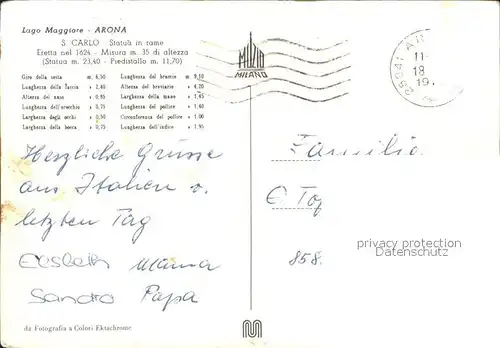 Lago Maggiore - ARONA
S. CARLO Statua in rame
Eretta nel 1624 - Misura m. 35 di altezza
(Statua m. 23,40 - Piedistallo m. 11,70)
Giro della testa m. 6,50
Lunghezza della faccia » 2,40
Altezza del naso » 0,85
Lunghezza dell'orecchio » 0,75
Larghezza degli occhi » 0,50
Larghezza della bocca » 0,75
Lunghezza del braccio m. 9,10
Altezza del breviario » 4,20
Larghezza della mano » 1,45
Lunghezza del pollice » 1,40
Circonferenza del pollice » 1,00
Lunghezza dell'indice » 1,95
MILANO
28041 AR
11-
18
19.
Herzliche Grüsse
aus Italien v.
letzten Tag
Elsbeth Mama
Sandro Papa
Familie
E. Tog
858.
privacy protection
Datenschutz
da Fotografia a Colori Ektachrome